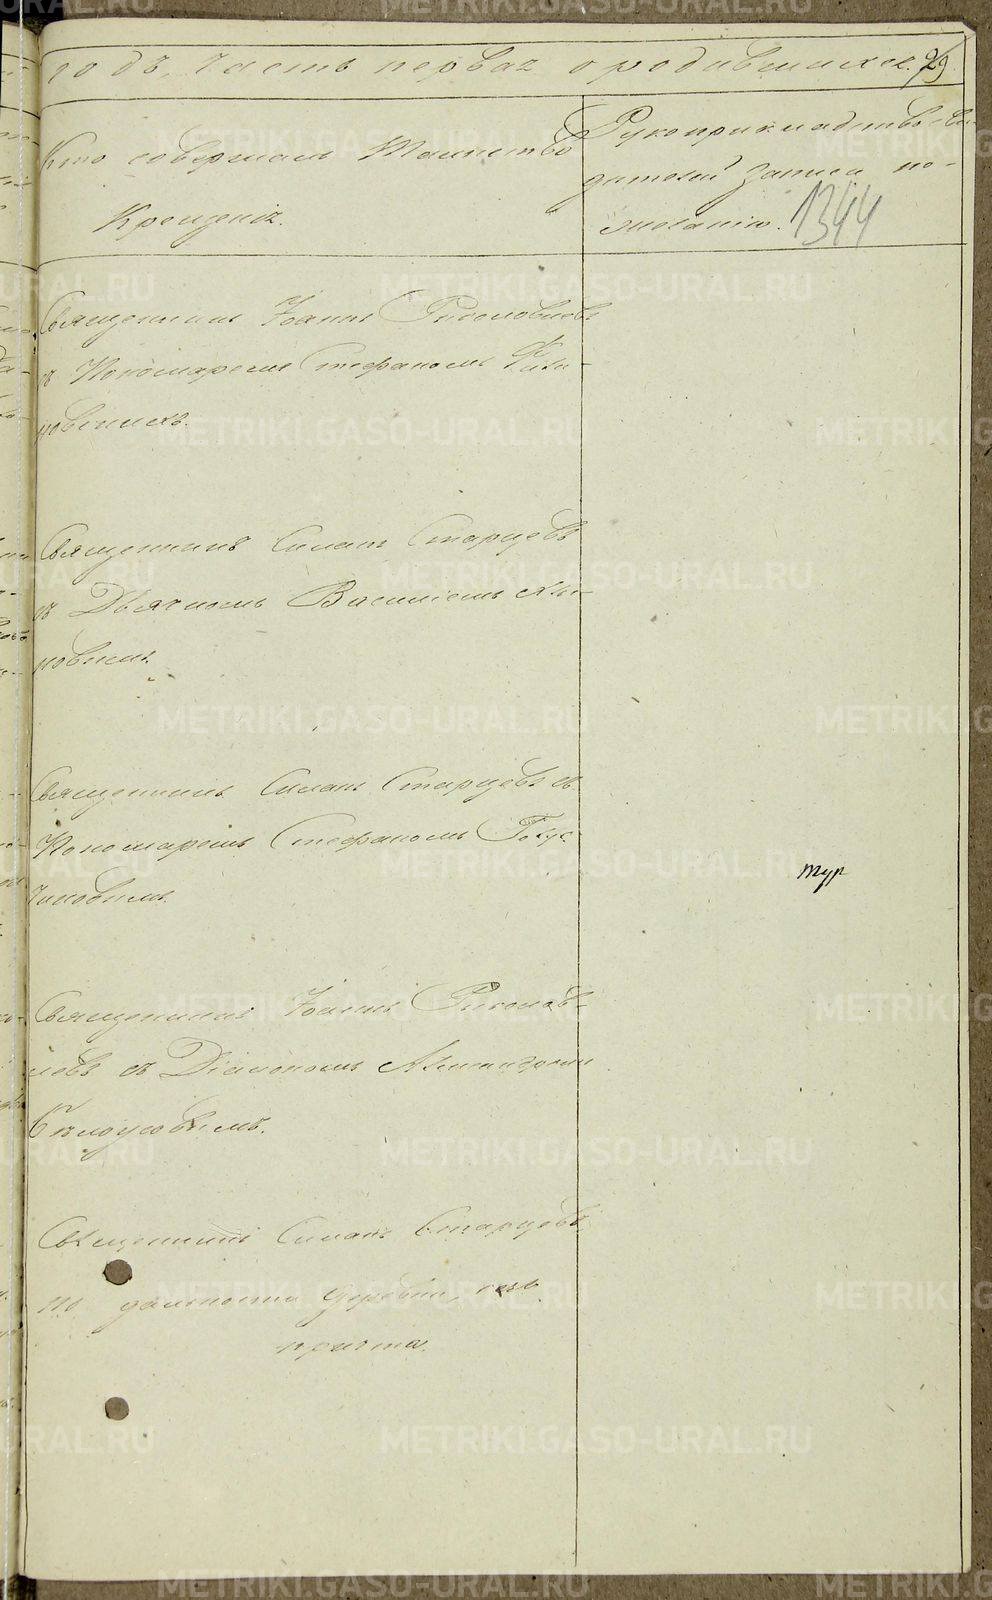 годъ, часть первая о родившихся.
29
Кто совершалъ Таинство
Крещенія.
Рукоприкладство сви-
дѣтелей записи по
желанію.
1344
Священникъ Іоаннъ
съ Пономаремъ Стефаномъ
Священникъ Силанъ Старцевъ
съ Дьячкомъ Василіемъ
новымъ.
Священникъ Силанъ Старцевъ съ
Пономаремъ Стефаномъ
чиновымъ.
тур
Священникъ Іоаннъ
левъ съ Діакономъ
Бѣлоусовымъ.
Священникъ Силанъ Старцевъ
по дальности деревни, безъ
причта.
METRIKI.GASO-URAL.RU